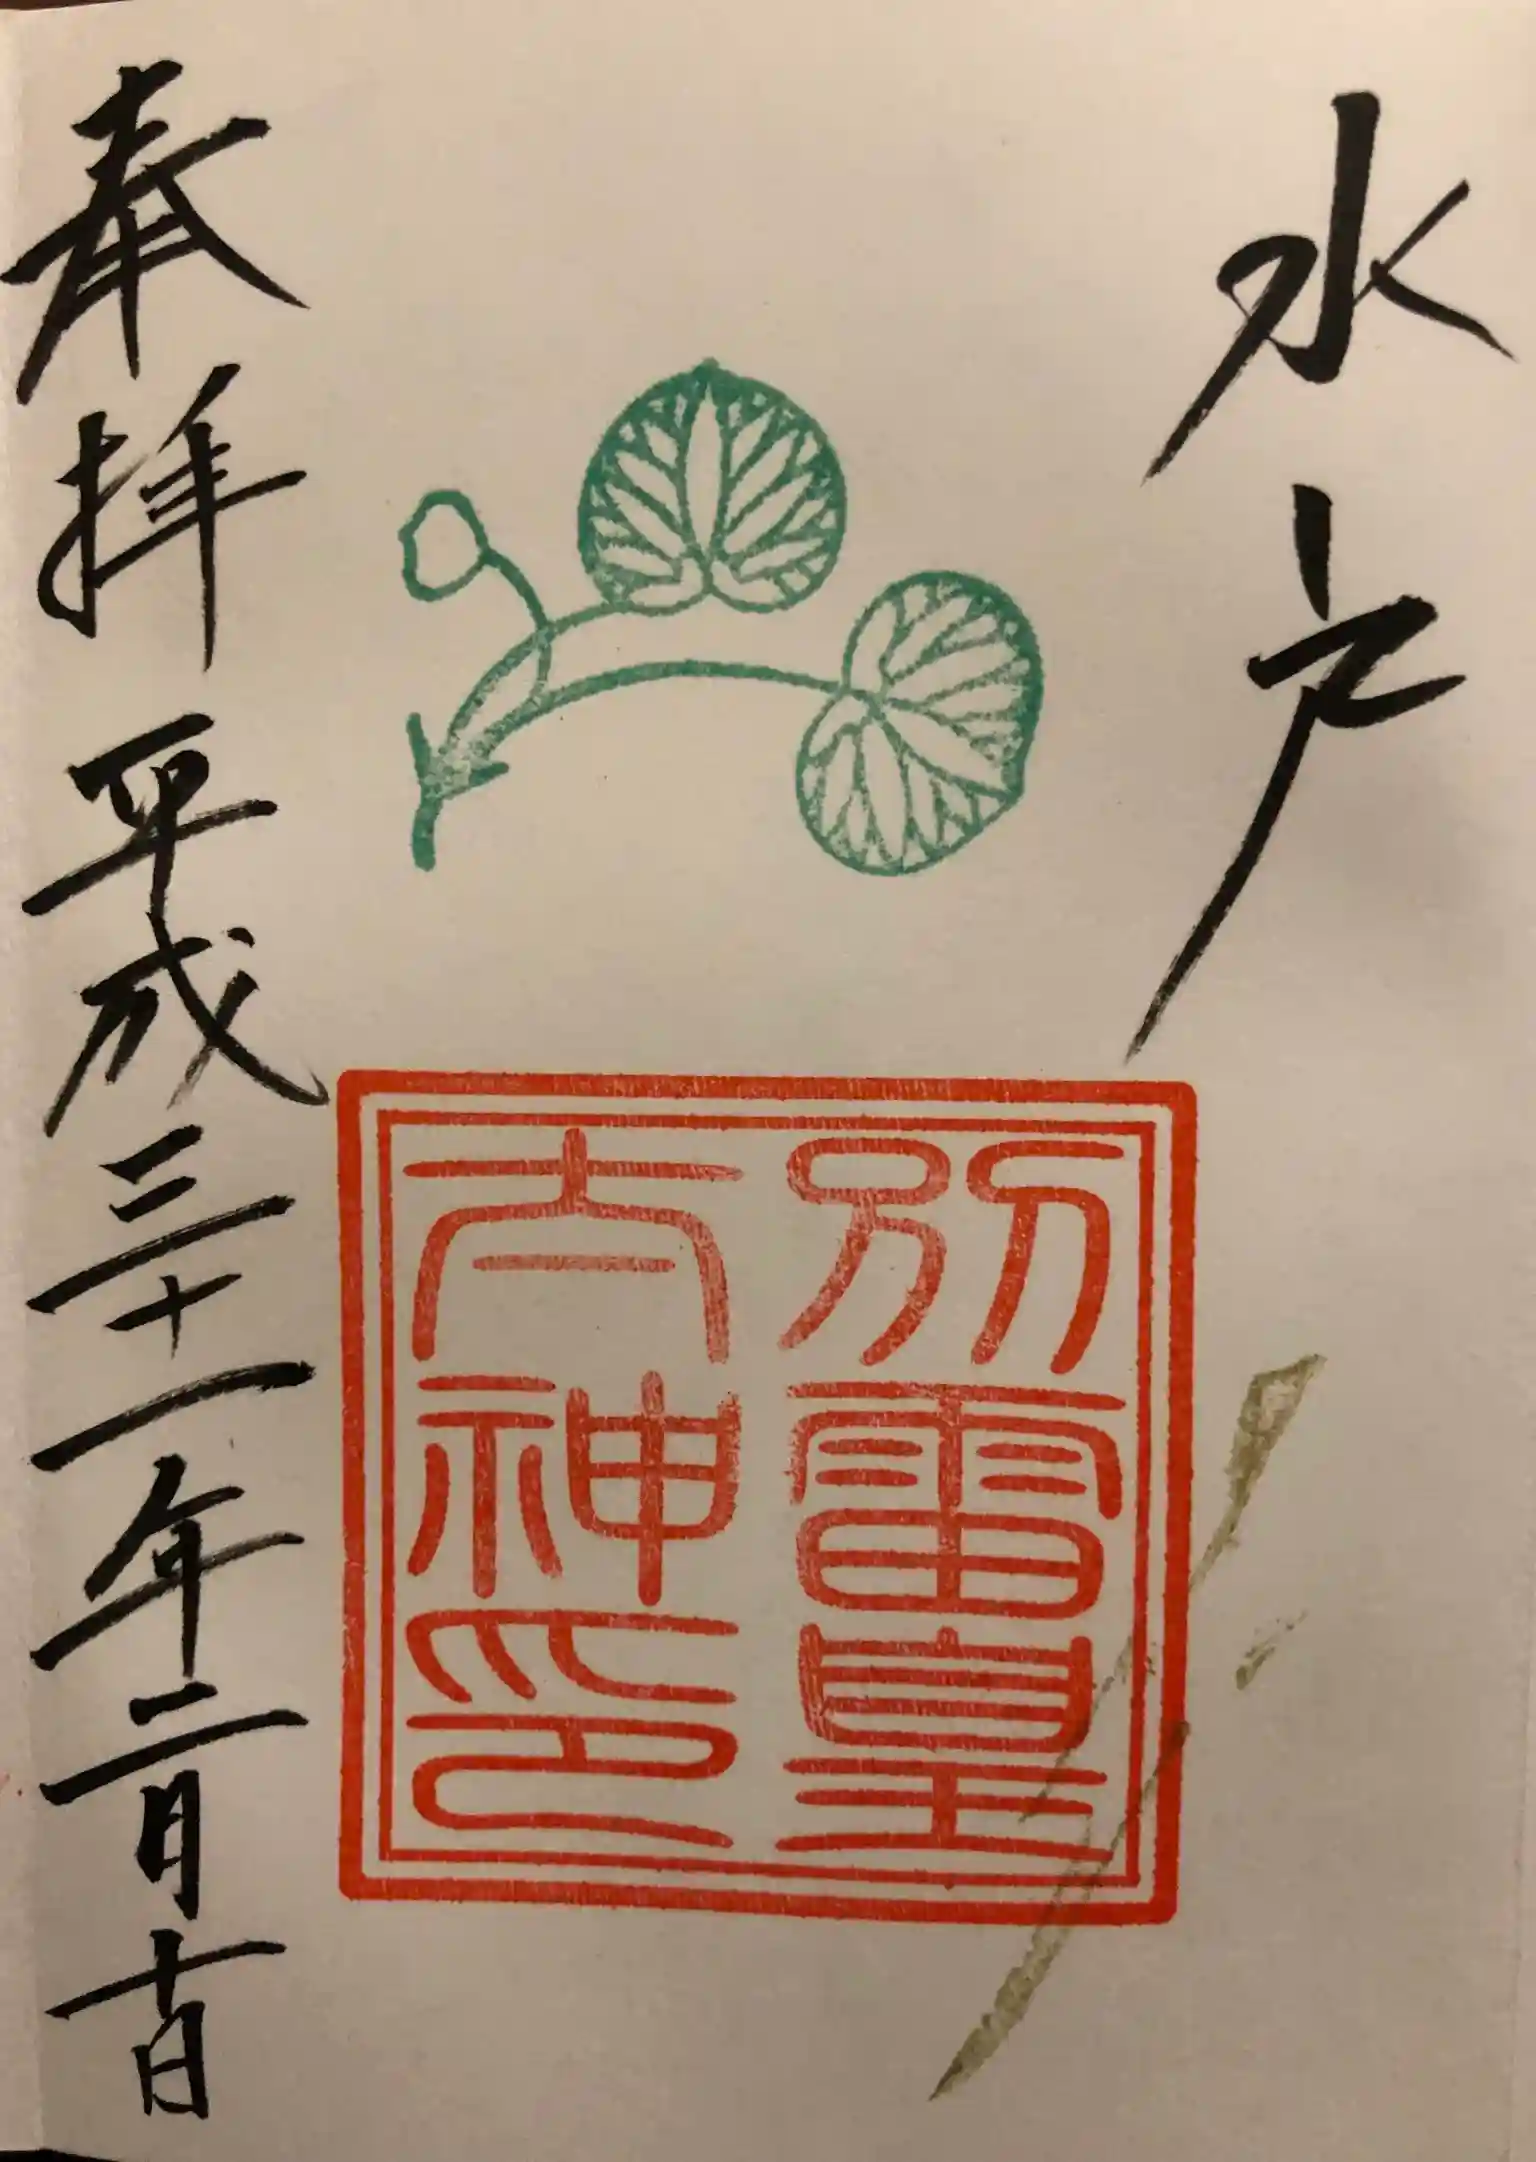 水戸
別雷皇
太神印
奉拝 平成三十一年二月十日